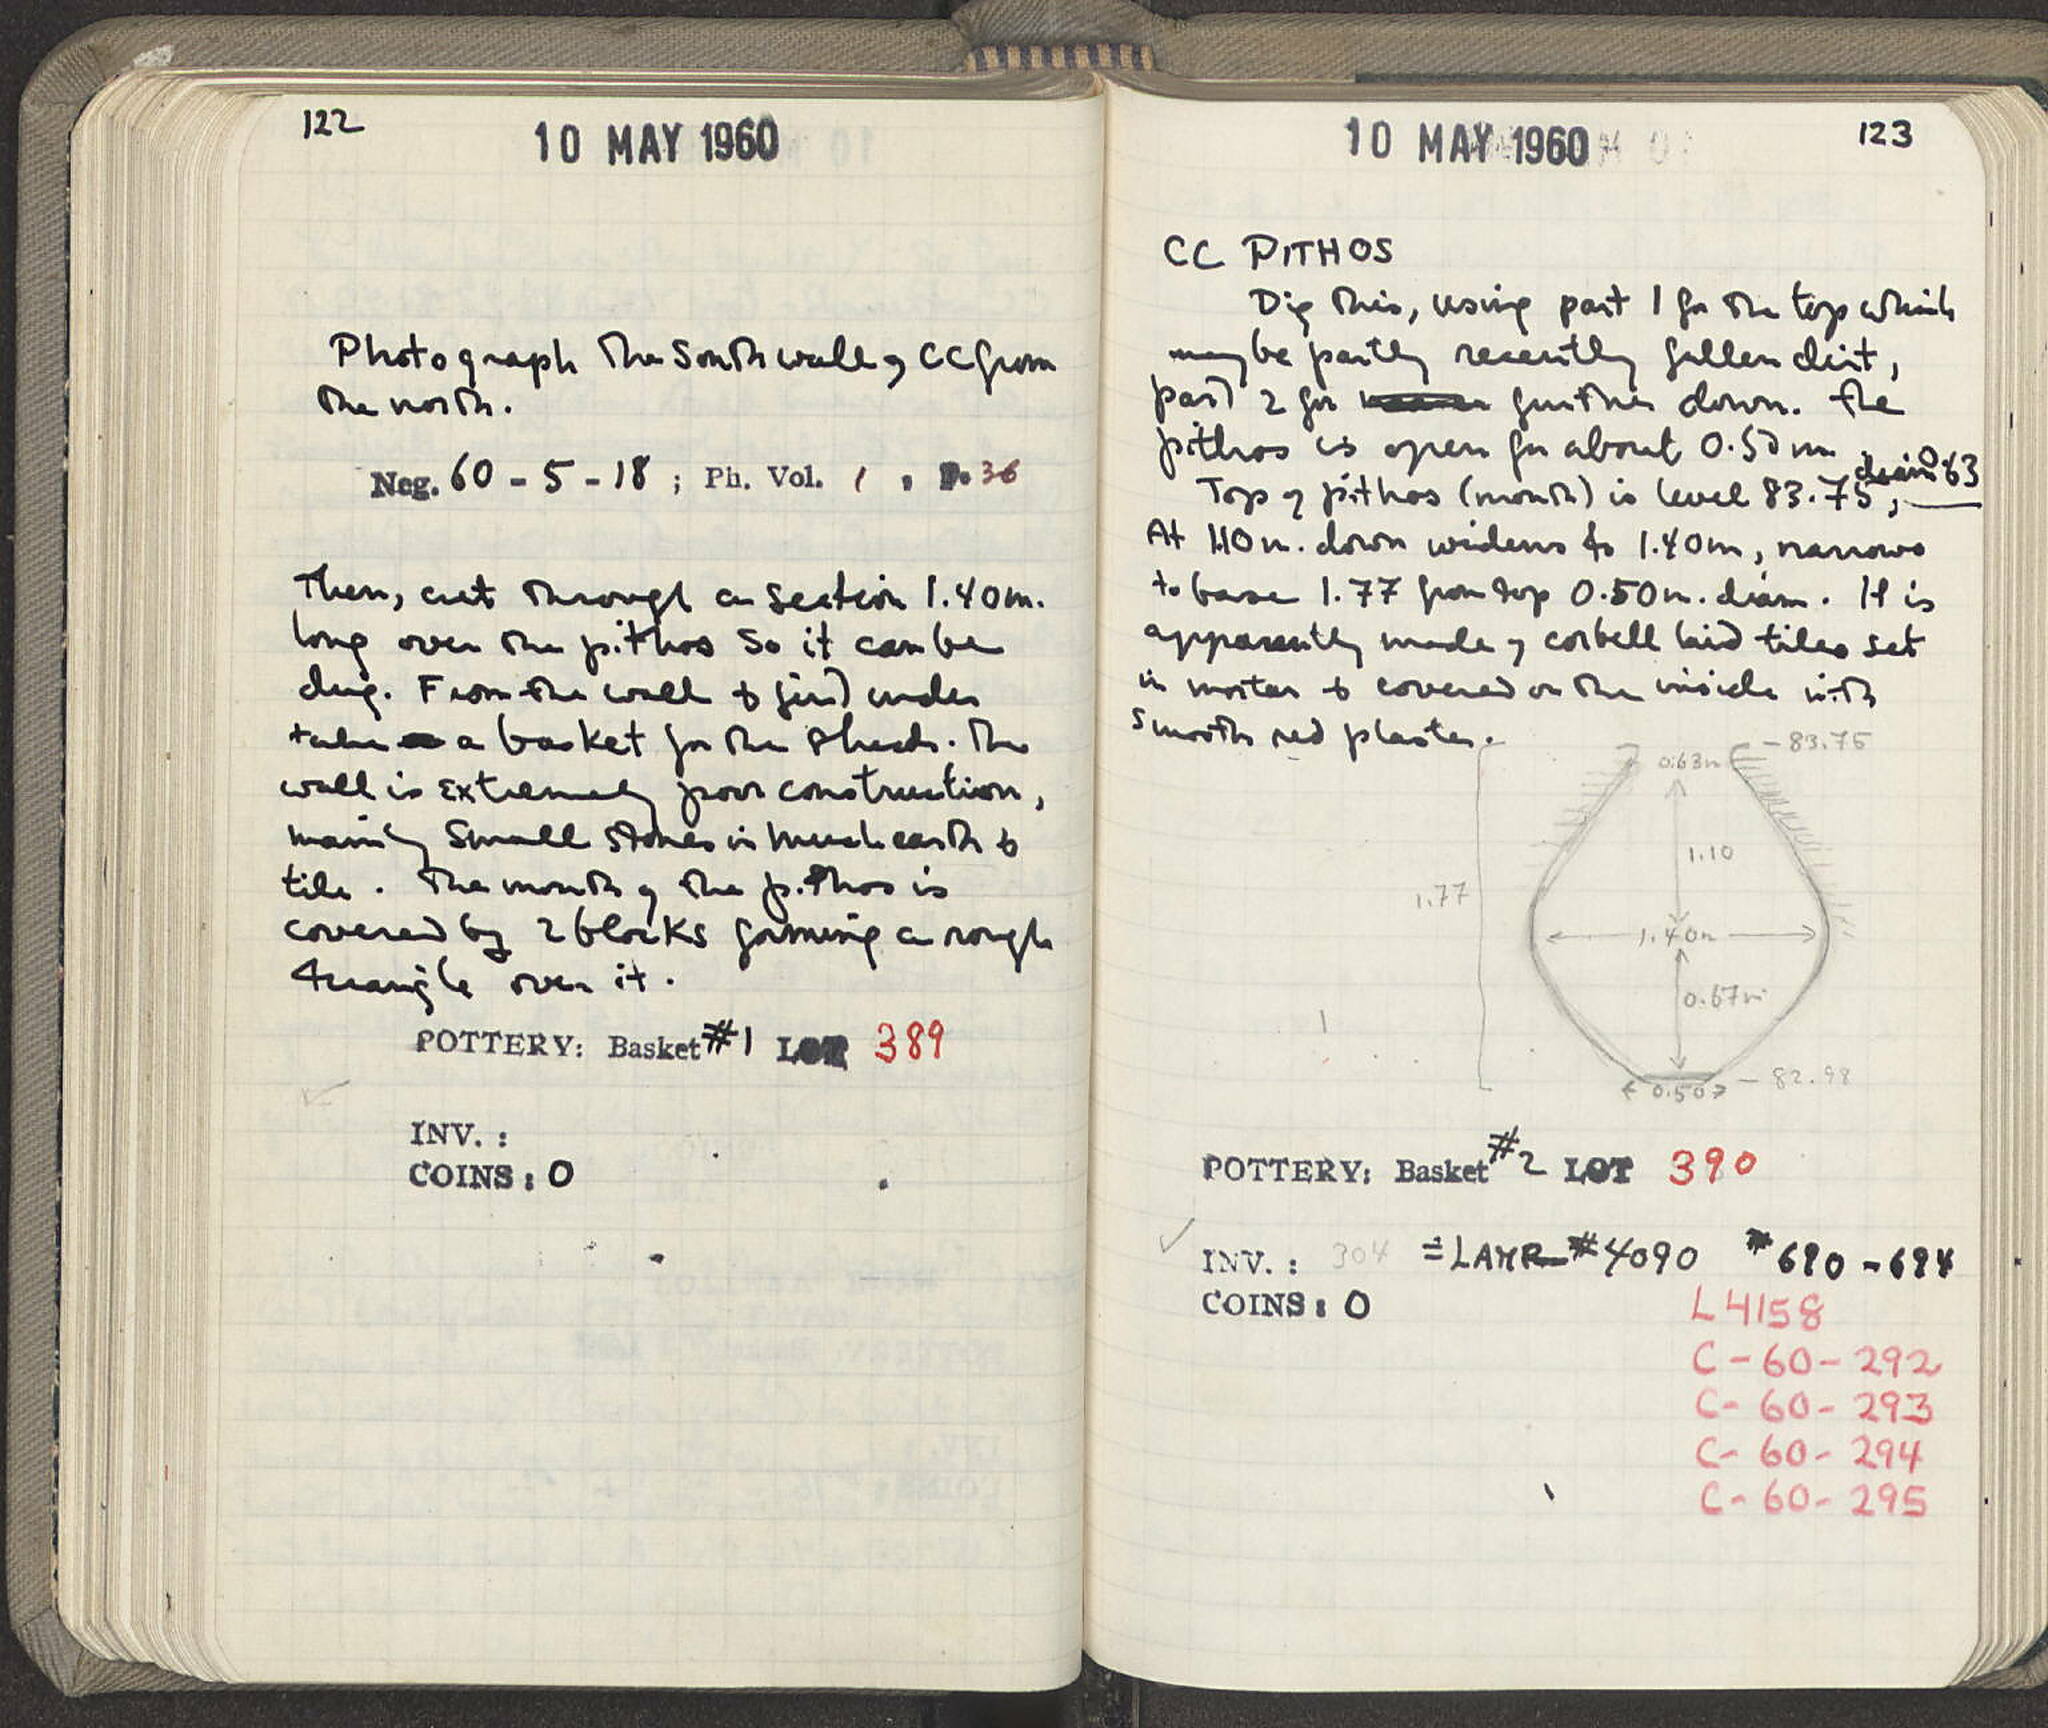 122
10 MAY 1960
Photograph the South wall of CC from
the north.
Neg. 60 - 5 - 18 ; Ph. Vol. 1 , P. 36
Then, cut through a section 1.40m.
long over the pithos so it can be
dug. From the wall & just under
take a basket for the sherds. The
wall is extremely poor construction,
mainly small stones in much earth &
tile. The mouth of the pithos is
covered by 2 blocks forming a rough
triangle over it.
POTTERY: Basket #1 LOT 389
INV. :
COINS: 0
10 MAY 1960
123
CC PITHOS
Dig this, using part 1 for the top which
may be partly recently fallen dirt,
part 2 for further down. The
pithos is open for about 0.50 m.
Top of pithos (mouth) is level 83.75, diam 0.63
At 1.10 m. down widens to 1.40m, narrows
to base 1.77 from top 0.50 m. diam. It is
apparently made of corbell laid tiles set
in mortar & covered on the inside with
smooth red plaster.
0.63m
- 83.75
1.10
1.77
1.40m
0.67m
0.50
- 82.98
POTTERY: Basket #2 LOT 390
INV. : 304 = LAMP #4090 #690-694
COINS: 0
L 4158
C-60-292
C-60-293
C-60-294
C-60-295